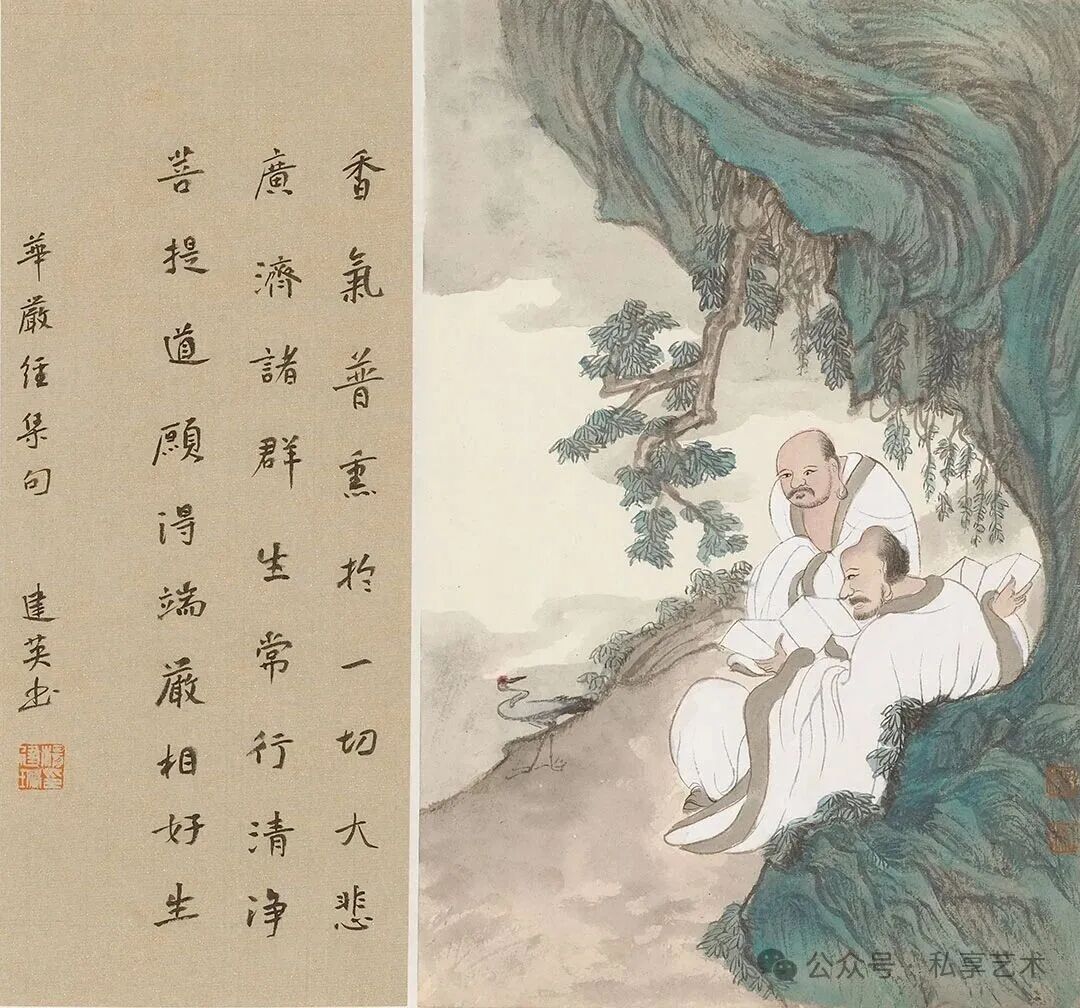 香氣普熏於一切大悲
廣濟諸群生常行清淨
菩提道願得端嚴相好生
華嚴經集句 建英书
公众号 · 私享艺术